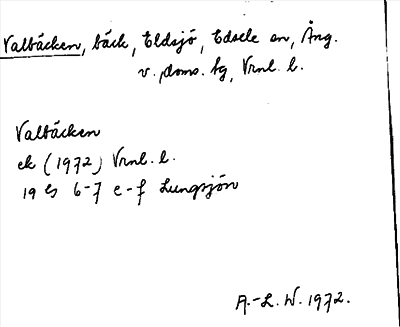 Valbäcken, bäck, Eldsjö, Edsele sn, Ång.
v. doms. tg, Vrnl. l.
Valbäcken
ek (1972) Vrnl. l.
19 G 6-7 e-f Lungsjön
A.-L. W. 1972.